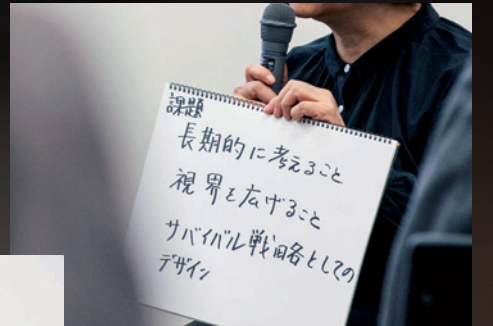 課題
長期的に考えること
視界を広げること
サバイバル戦略としての
デザイン